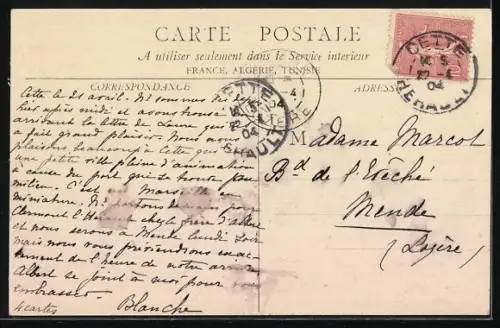 CARTE POSTALE
A utiliser seulement dans le Service intérieur
FRANCE, ALGÉRIE, TUNISIE
CORRESPONDANCE
ADRESSE
CETTE
22 -4
04
HERAULT
CETTE
22 -4
04
HERAULT
Cette le 21 avril. Nous sommes ici
hier après midi et avons trouvé en
arrivant la lettre de Laure qui
a fait grand plaisir. Nous nous
plaisons beaucoup à Cette qui
une petite ville pleine d'animation
à cause du port qui se trouve
milieu. C'est un Marseille en
miniature. Nous partons demain pour
Clermont l'Hérault chez le frère d'Albert
et nous serons à Mende lundi soir
mais nous vous préviendrons exac-
tement de l'heure de notre arrivée
Albert se joint à moi pour vous
embrasser.
Blanche
4 cartes
Madame Marcot
Bd de l'Evêché
Mende
(Lozère)